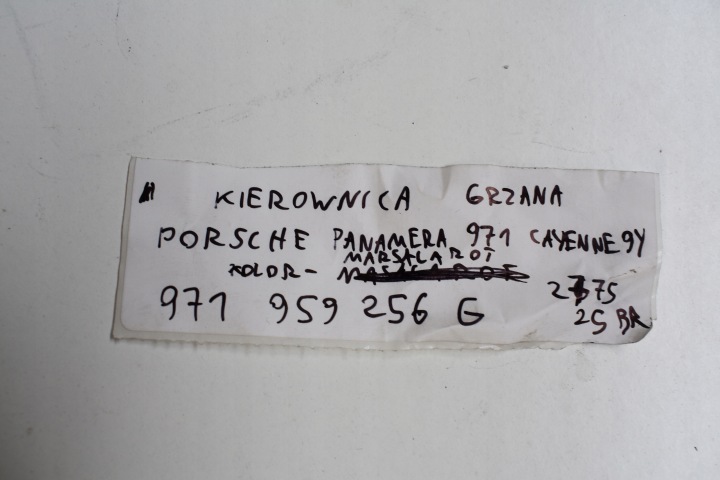 KIEROWNICA GRZANA
PORSCHE PANAMERA 971 CAYENNE 9Y
MARSALAROT
KOLOR-
971 959 256 G
2775
25 BR